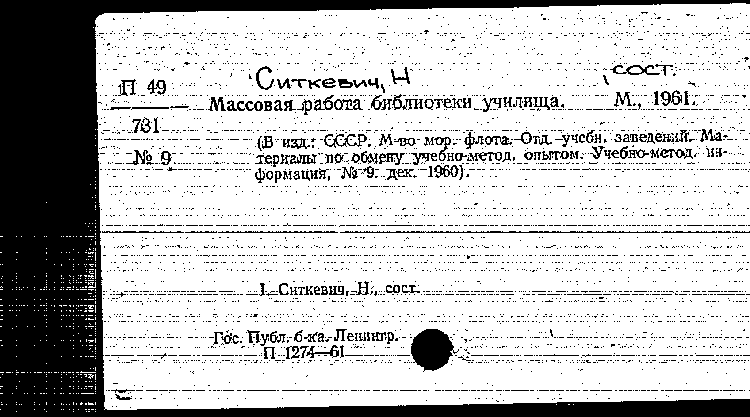 П 49
Ситкевич, Н , сост.
Массовая работа библиотеки училища. М., 1961.
731
(В изд.: СССР. М-во мор. флота. Отд. учебн. заведений. Ма-
№ 9
териалы по обмену учебно-метод. опытом. Учебно-метод. ин-
формация, № 9. дек. 1960).
I. Ситкевич, Н., сост.
Гос. Публ. б-ка. Ленингр.
П 1274—61